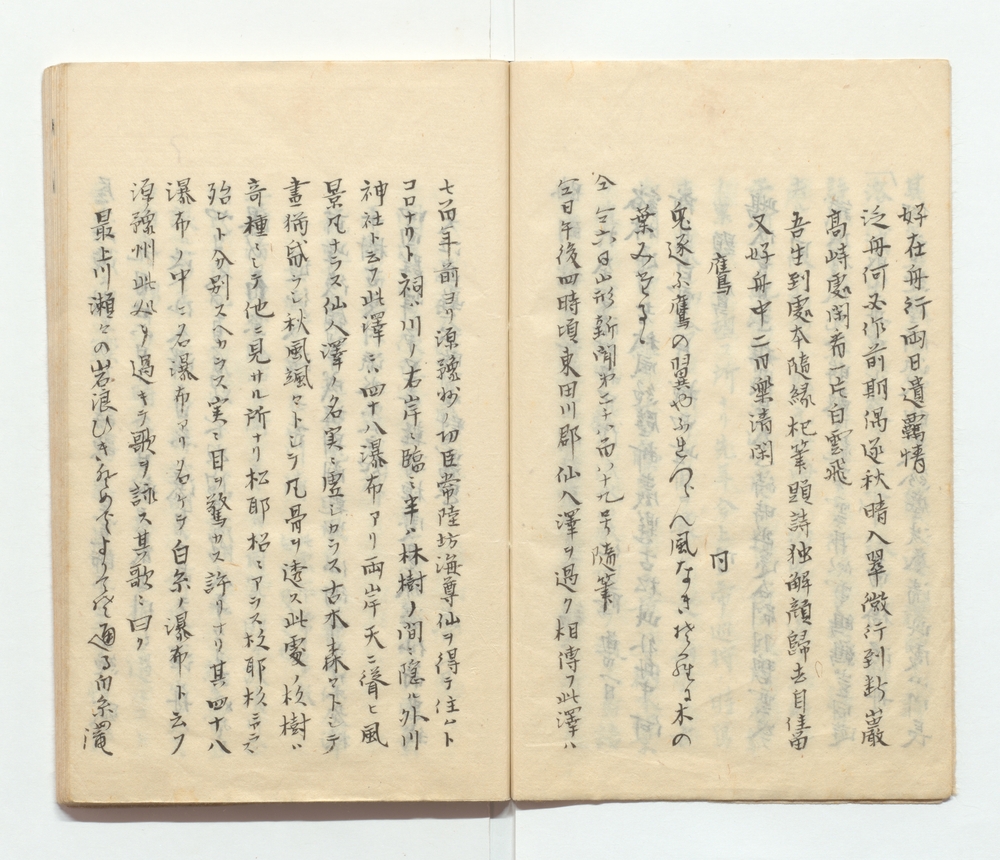 好在舟行両日遺羈情
泛舟何必作前期偶逐秋晴入翠微行到断巌
高峙處閑看一片白雲飛
吾生到處本随縁把筆題詩独解顔歸去自佳
又好舟中二日楽清閑
鷹 同
兎逐ふ鷹の翼や
葉みち
仝 仝六日山形新聞第二千六百八十九号隨筆
仝日午後四時頃東田川郡仙人澤ヲ過ク相傳フ此澤ハ
七百年前ヨリ源豫州ノ功臣常陸坊海尊仙ヲ得テ住ムト
コロナリト祠ハ川ノ右岸ニ臨ミ半ハ林樹ノ間ニ隠ル外川
神社ト云フ此澤ニハ四十八瀑布アリ両岸天ニ聳ヒ風
景凡ナラス仙人澤ノ名実ニ虚シカラス古木森々トシテ
晝猶咸ラシ秋風颯々トシテ凡骨ヲ透ス此處ノ杉樹ハ
奇種ニシテ他ニ見サル所ナリ松耶松ニアラス杉耶杉ニアラス
殆ント分別スヘカラス実ニ目ヲ驚カス許リナリ其四十八
瀑布ノ中ニ名瀑布アリ名ケテ白糸ノ瀑布ト云フ
源豫州此処ヲ過キテ歌ヲ詠ス其歌ニ曰ク
最上川瀬々の岩浪ひき